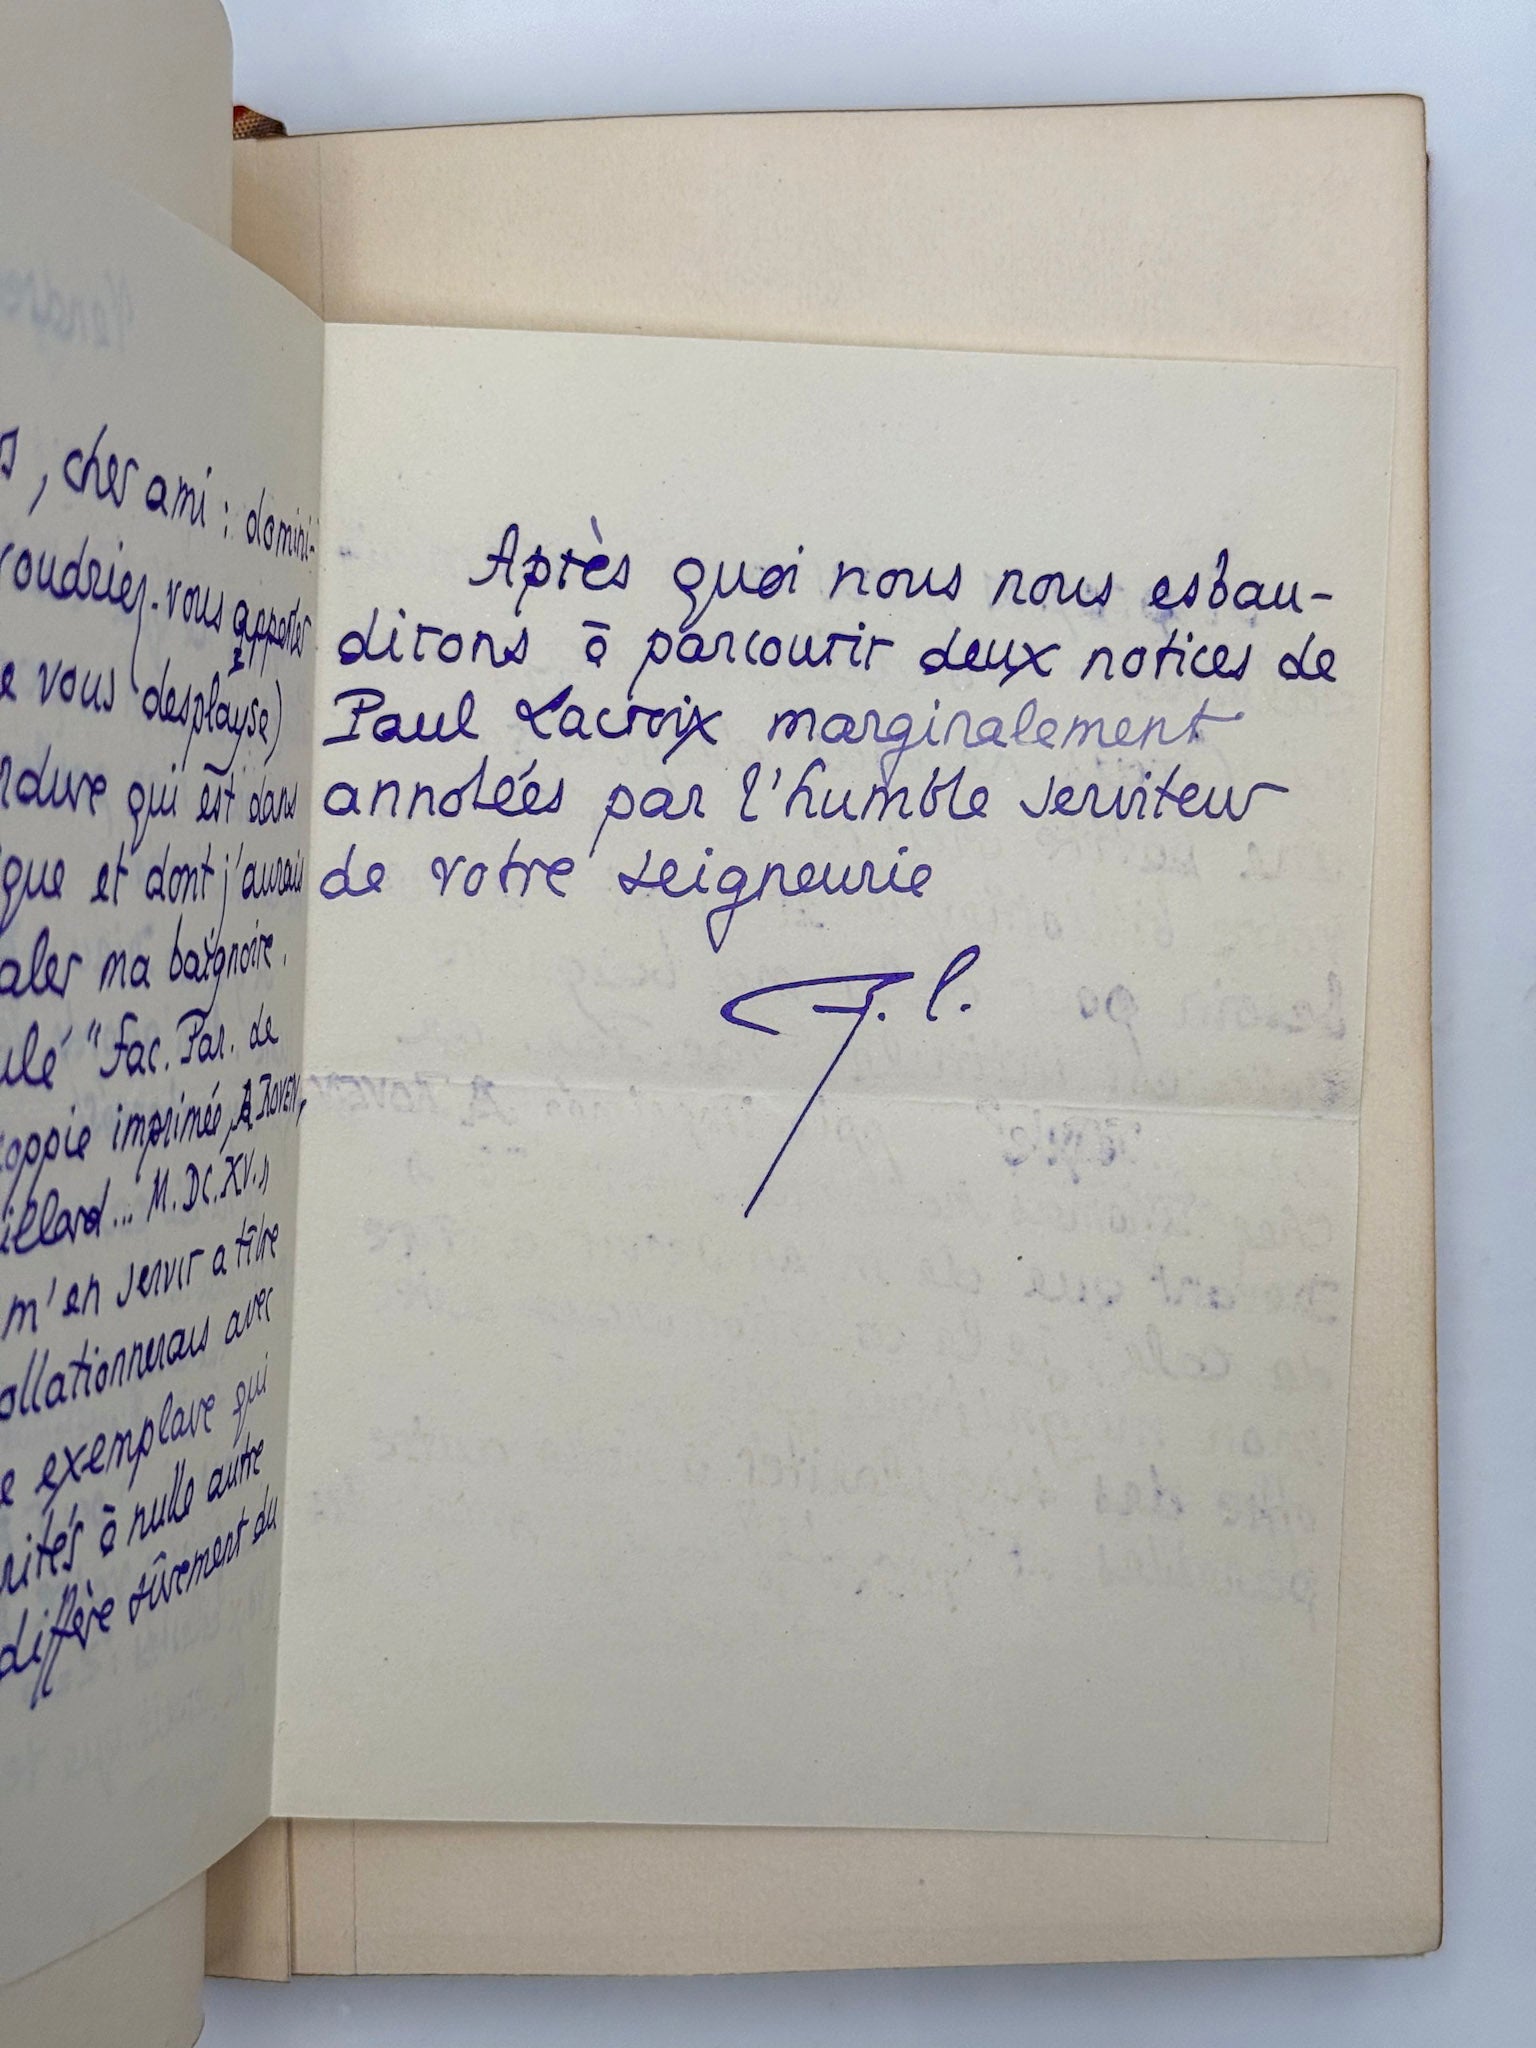 , cher ami : domini-
voudriez-vous apporter
vous desplayse)
qui est dans
et dont j'aurais
ma baignoire.
"Fac. Par. de
coppie imprimée, A ROVEN,
... M.DC.XV.„
m'en servir a titre
collationnerais avec
exemplaire qui
à nulle autre
diffère sûrement du
Après quoi nous nous esbau-
dirons à parcourir deux notices de
Paul Lacroix marginalement
annotées par l'humble serviteur
de votre seigneurie